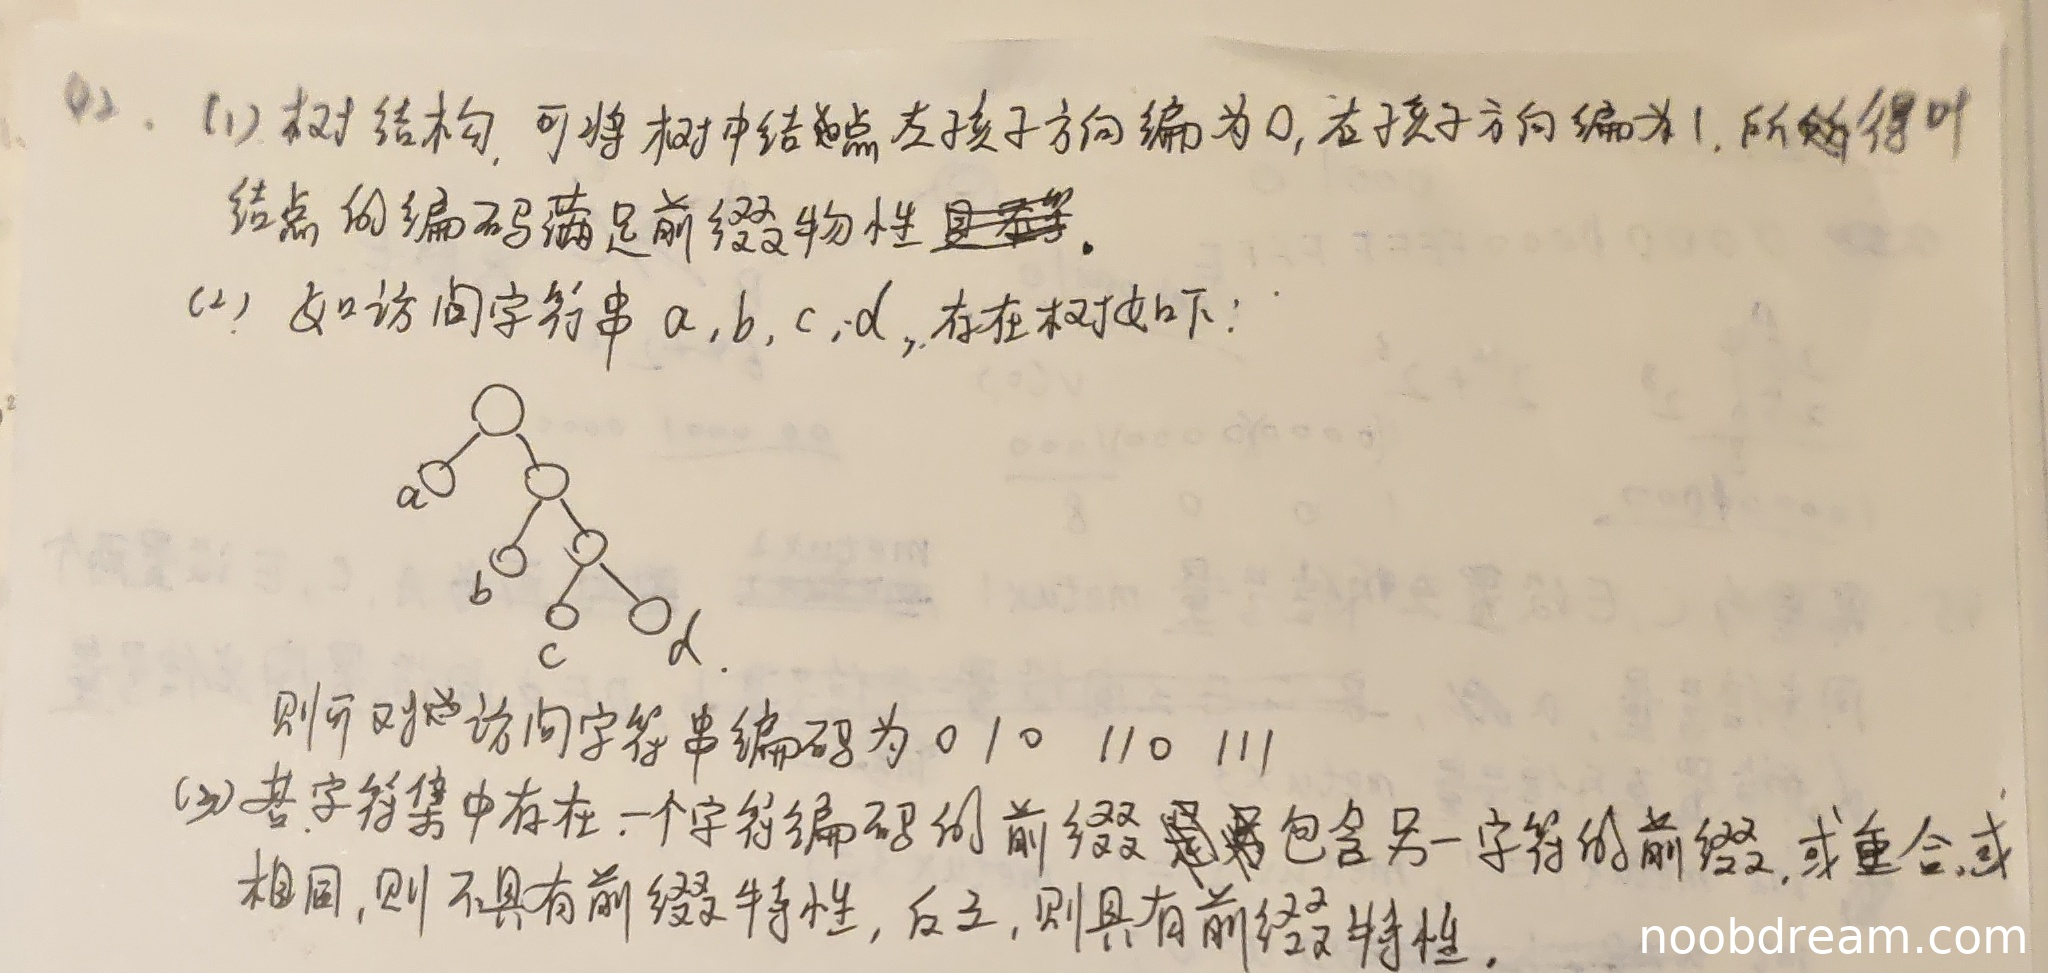 42. (1) 树结构,可将树中结点左孩子方向编为0,右孩子方向编为1.所得叶
结点的编码满足前缀特性.
(2) 如访问字符串 a, b, c, d, 存在树如下:
a
b
c
d.
则可对访问字符串编码为 0 10 110 111
(3) 若字符集中存在一个字符编码的前缀包含另一字符的前缀,或重合,或
相同,则不具有前缀特性,反之,则具有前缀特性.
noobdream.com